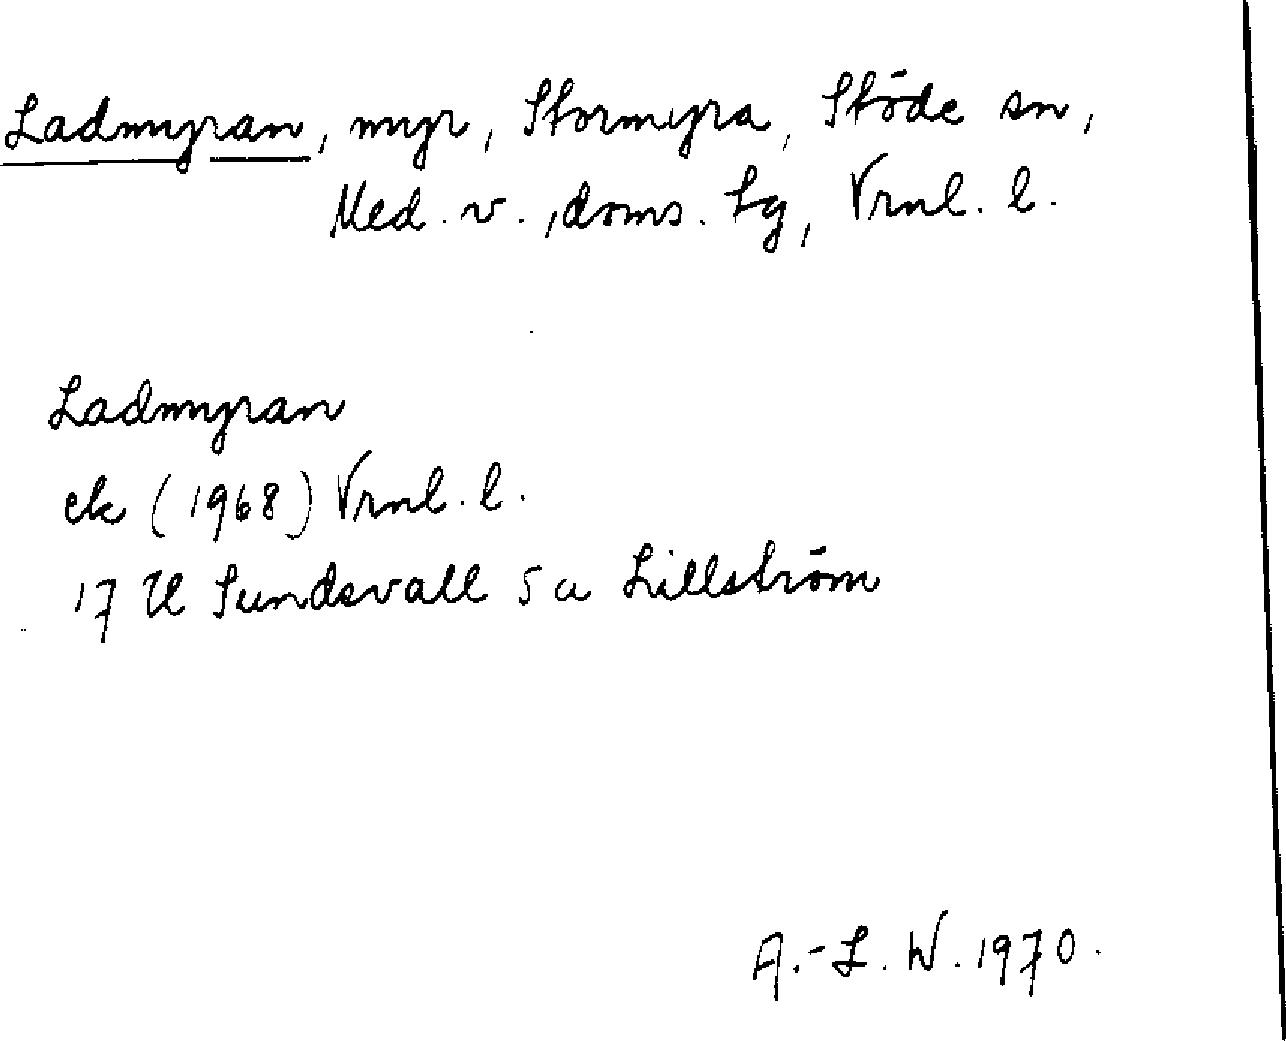 Ladmyran, myr, Stormyra, Stöde sn,
Med. v., doms. lg, Vrnl. l.
Ladmyran
ek (1968) Vrnl. l.
17 H Sundsvall 5 a Lillström
A.-L. W. 1970.